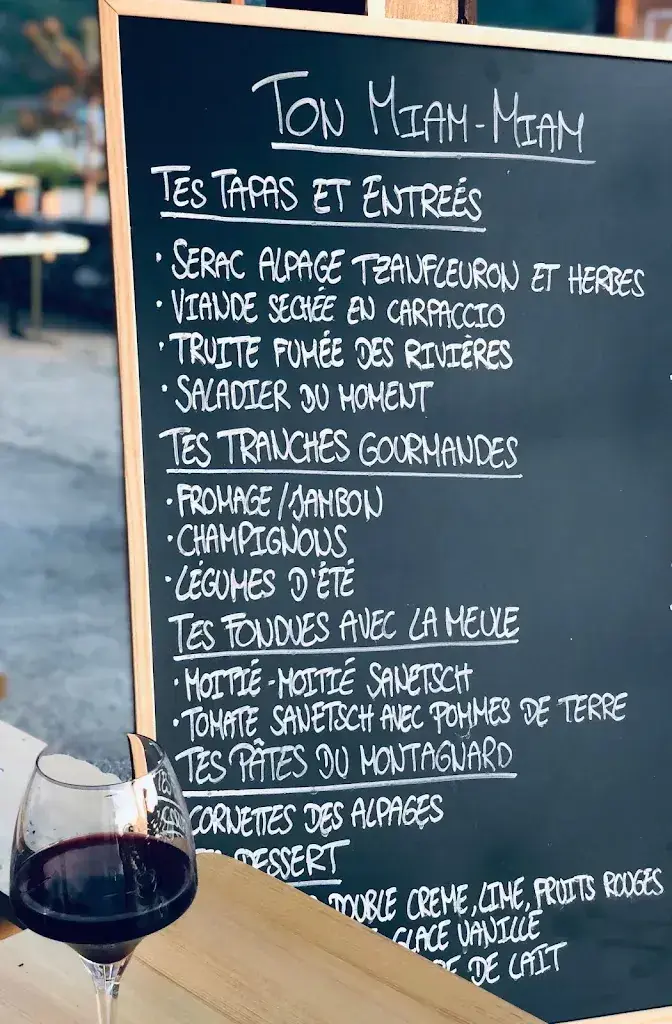 TON MIAM-MIAM
TES TAPAS ET ENTREÉS
· SERAC ALPAGE TZANFLEURON ET HERBES
· VIANDE SECHÉE EN CARPACCIO
· TRUITE FUMÉE DES RIVIÈRES
· SALADIER DU MOMENT
TES TRANCHES GOURMANDES
· FROMAGE/JAMBON
· CHAMPIGNONS
· LÉGUMES D'ÉTÉ
TES FONDUES AVEC LA MEULE
· MOITIÉ-MOITIÉ SANETSCH
· TOMATE SANETSCH AVEC POMMES DE TERRE
TES PÂTES DU MONTAGNARD
CORNETTES DES ALPAGES
DESSERT
DOUBLE CREME, LIME, FRUITS ROUGES
GLACE VANILLE
DE LAIT